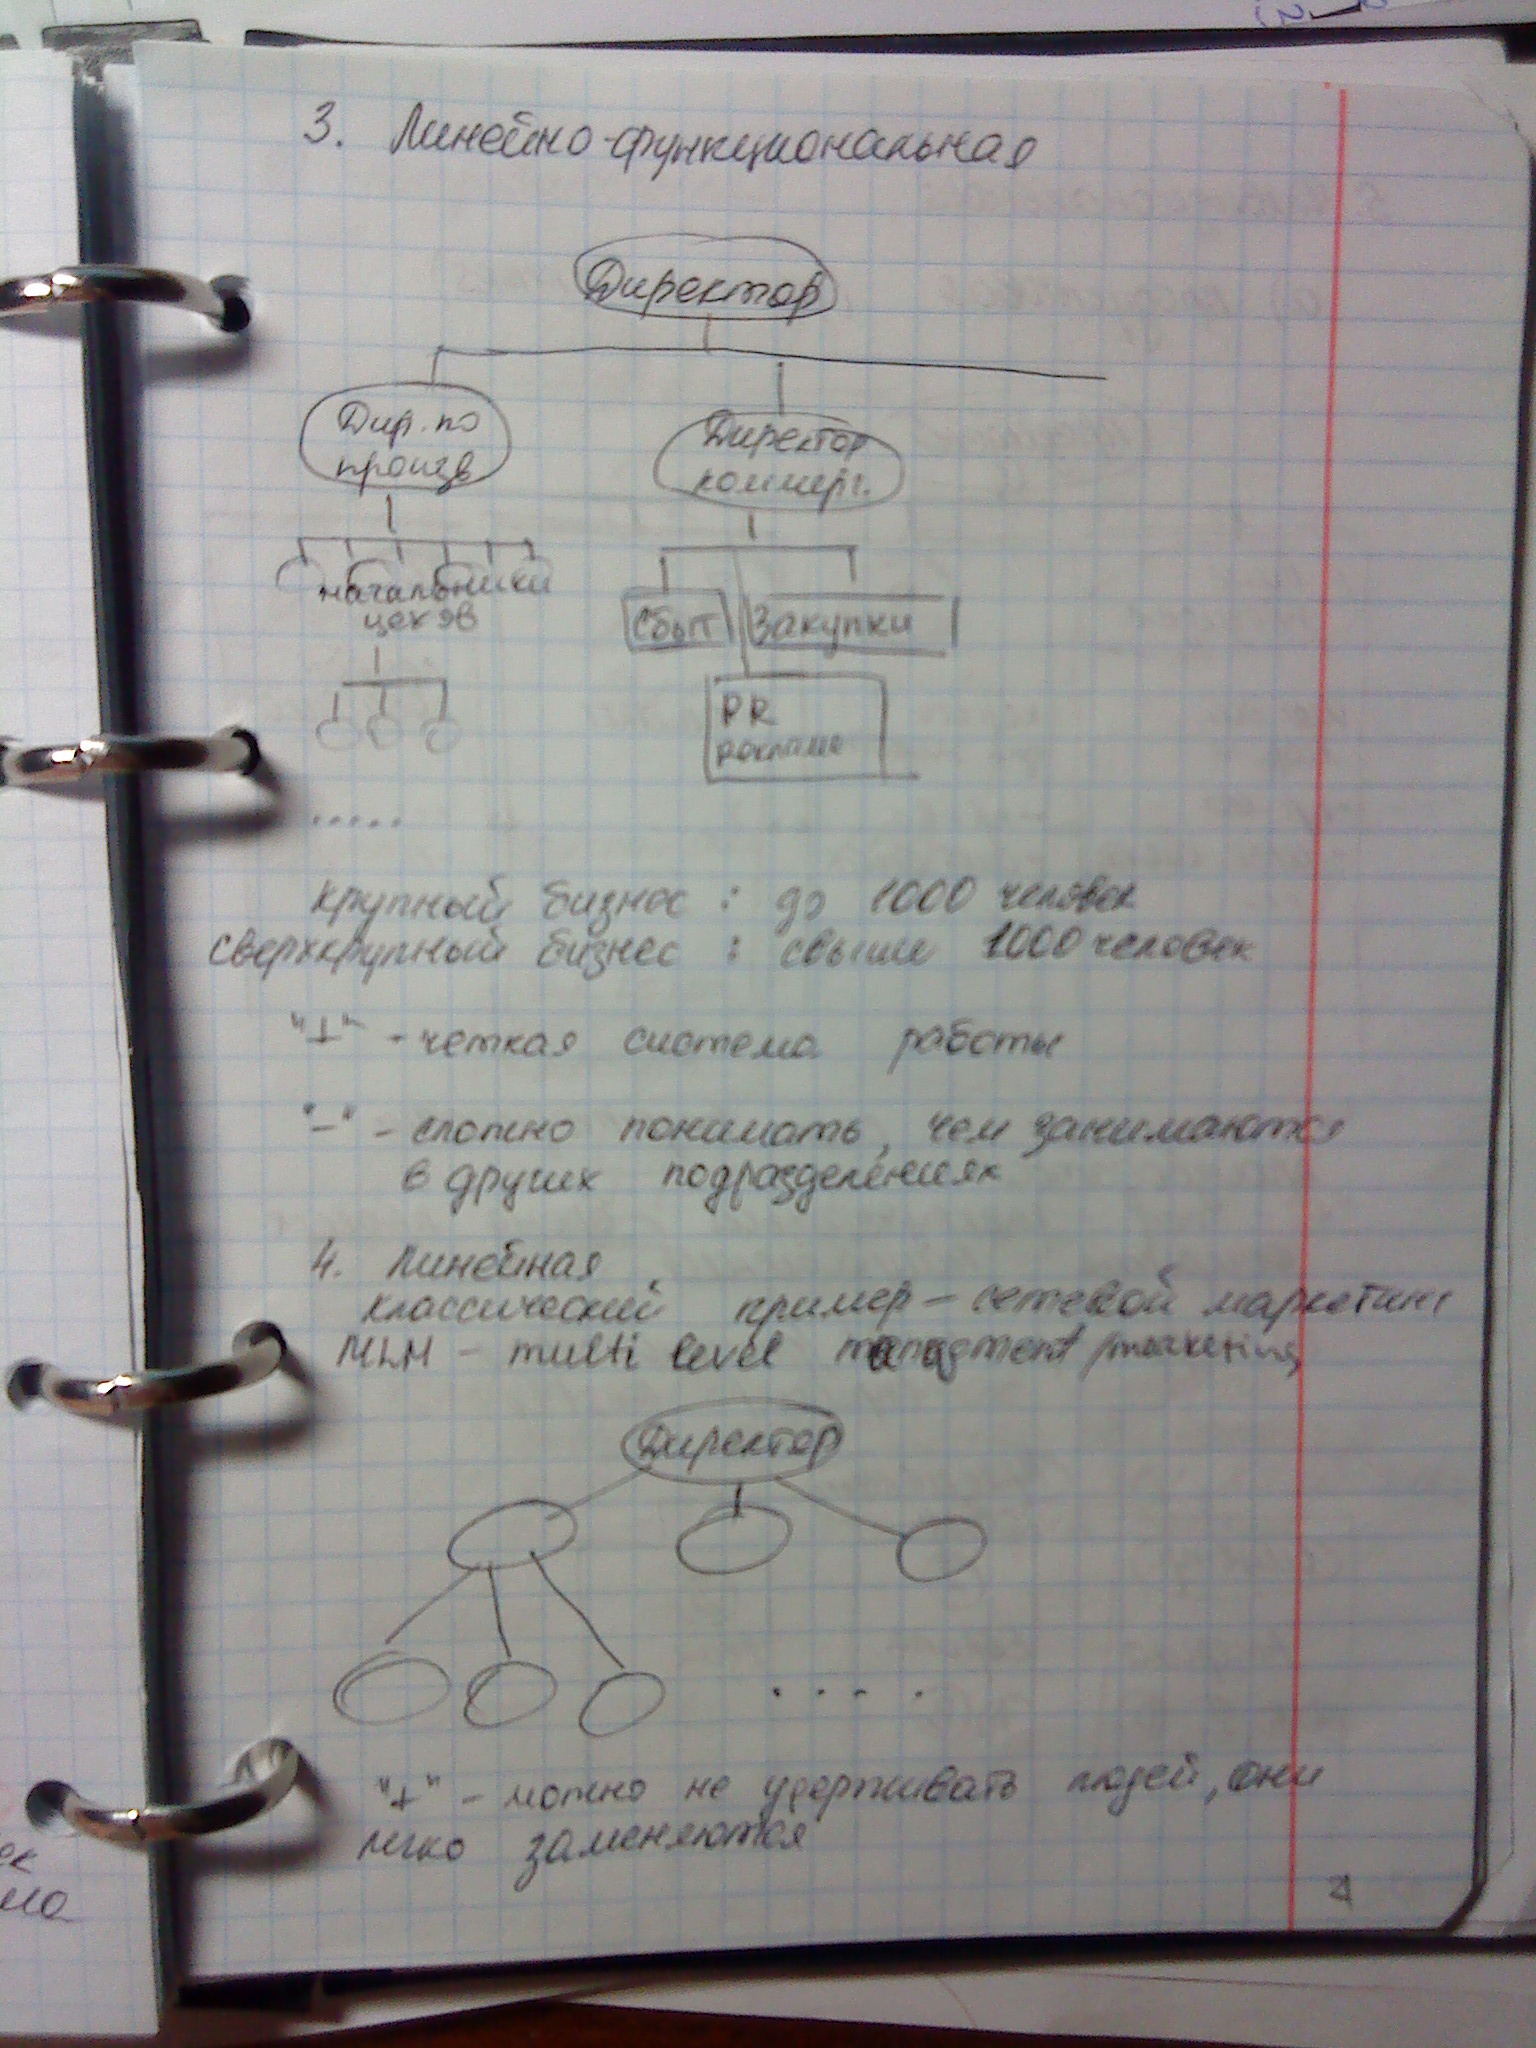 3. Линейно-функциональная
Директор
Дир. по
произв
Директор
коммерч.
начальники
цехов
Сбыт
Закупки
PR
реклама
.....
крупный бизнес : до 1000 человек
сверхкрупный бизнес : свыше 1000 человек
"+" - четкая система работы
"-" - сложно понимать, чем занимаются
в других подразделениях
4. Линейная
классический пример – сетевой маркетинг
MLM – multi level management/marketing
Директор
. . . .
"+" - можно не удерживать людей, они
легко заменяются
ек
ма